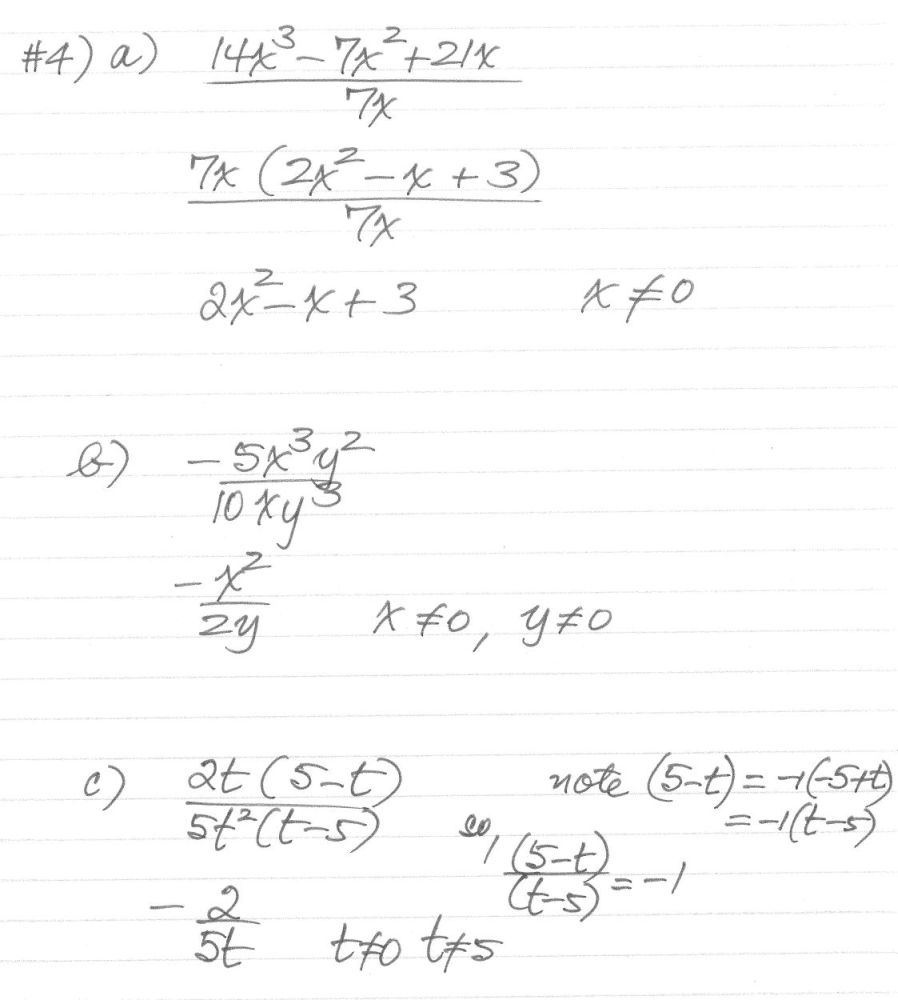 #4) a) 14x³ - 7x² + 21x
7x
7x (2x² - x + 3)
7x
2x² - x + 3 x ≠ 0
b) - 5x³y²
10xy³
- x²
2y x ≠ 0, y ≠ 0
c) 2t (5-t) note (5-t) = -1(-5+t)
5t²(t-5) = -1(t-5)
so, (5-t)
(t-5) = -1
- 2
5t t≠0 t≠5